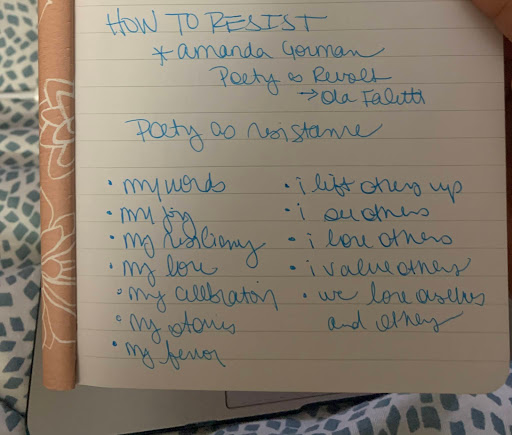 HOW TO RESIST
* Amanda Gorman
Poetry as Revolt
→ Ola Faletti
Poetry as resistance
• my words
• my joy
• my resiliency
• my love
• my celebration
• my stories
• my fervor
• i lift others up
• i see others
• i love others
• i value others
• we love ourselves
and others